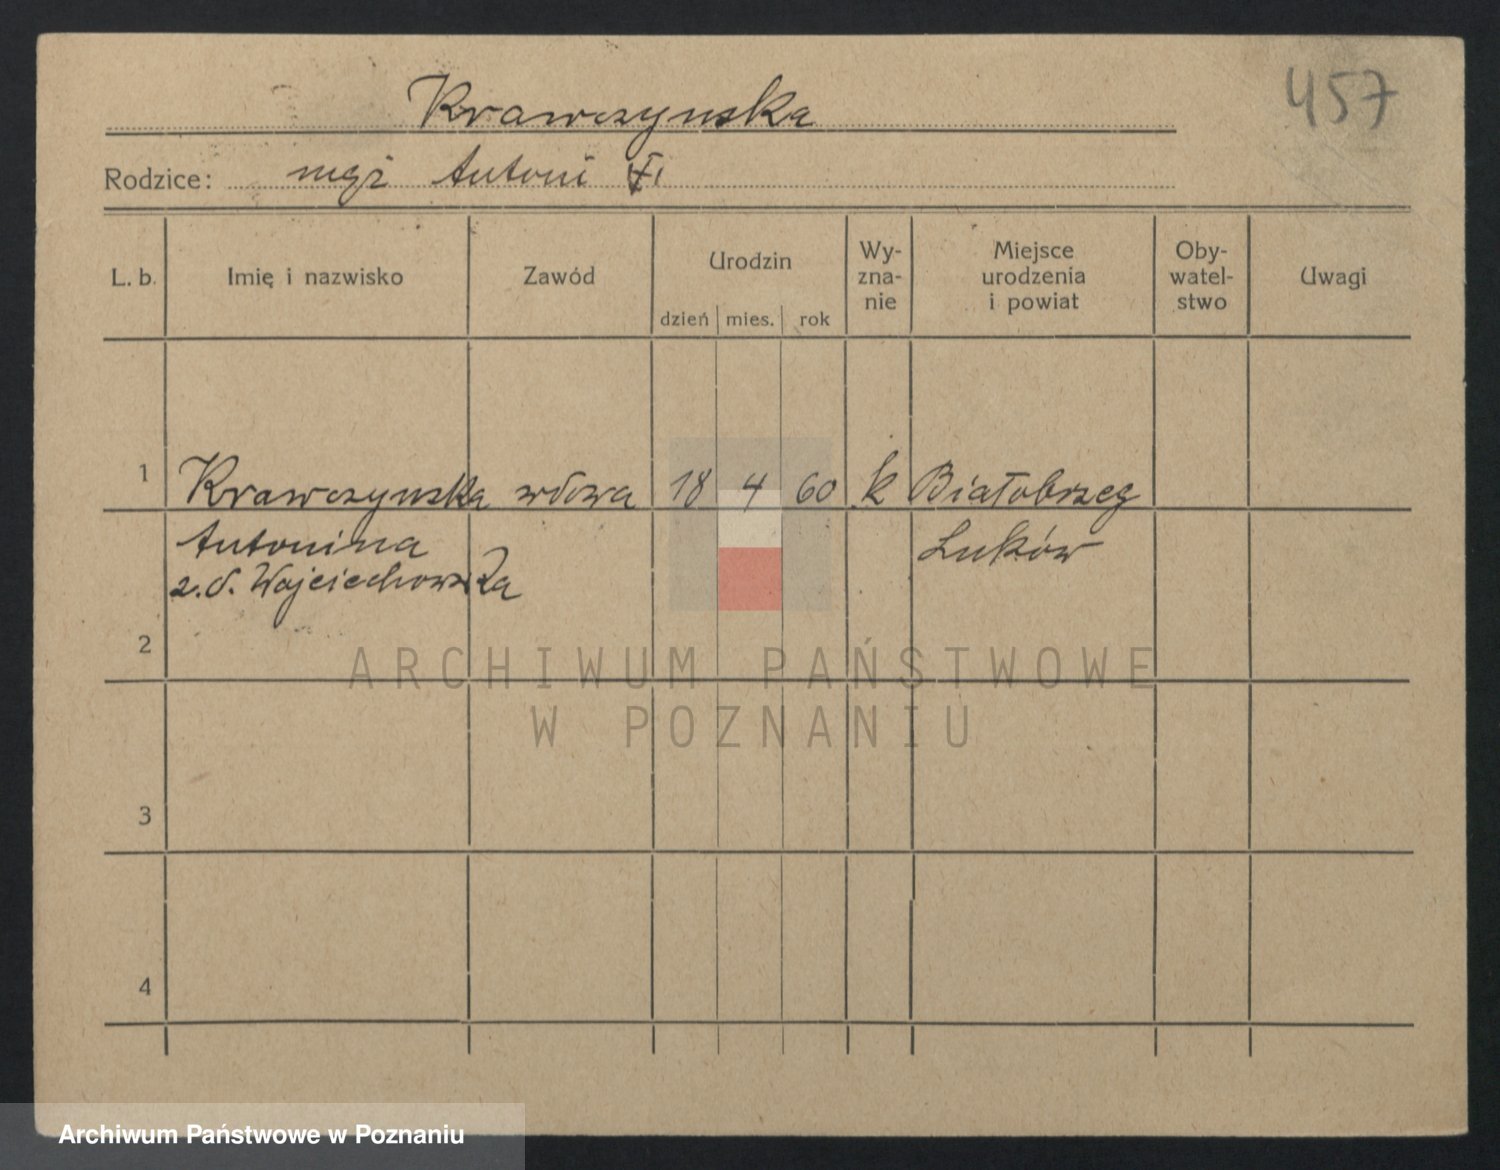 457
Krawczynska
Rodzice: mąż Antoni
L. b. Imię i nazwisko Zawód Urodzin dzień mies. rok Wy-zna-nie Miejsce urodzenia i powiat Oby-watel-stwo Uwagi
1 Krawczynska wdowa 18 4 60 k Białobrzeg
Antonina Łuków
z.d. Wojciechowska
2
3
4
ARCHIWUM PAŃSTWOWE
W POZNANIU
Archiwum Państwowe w Poznaniu